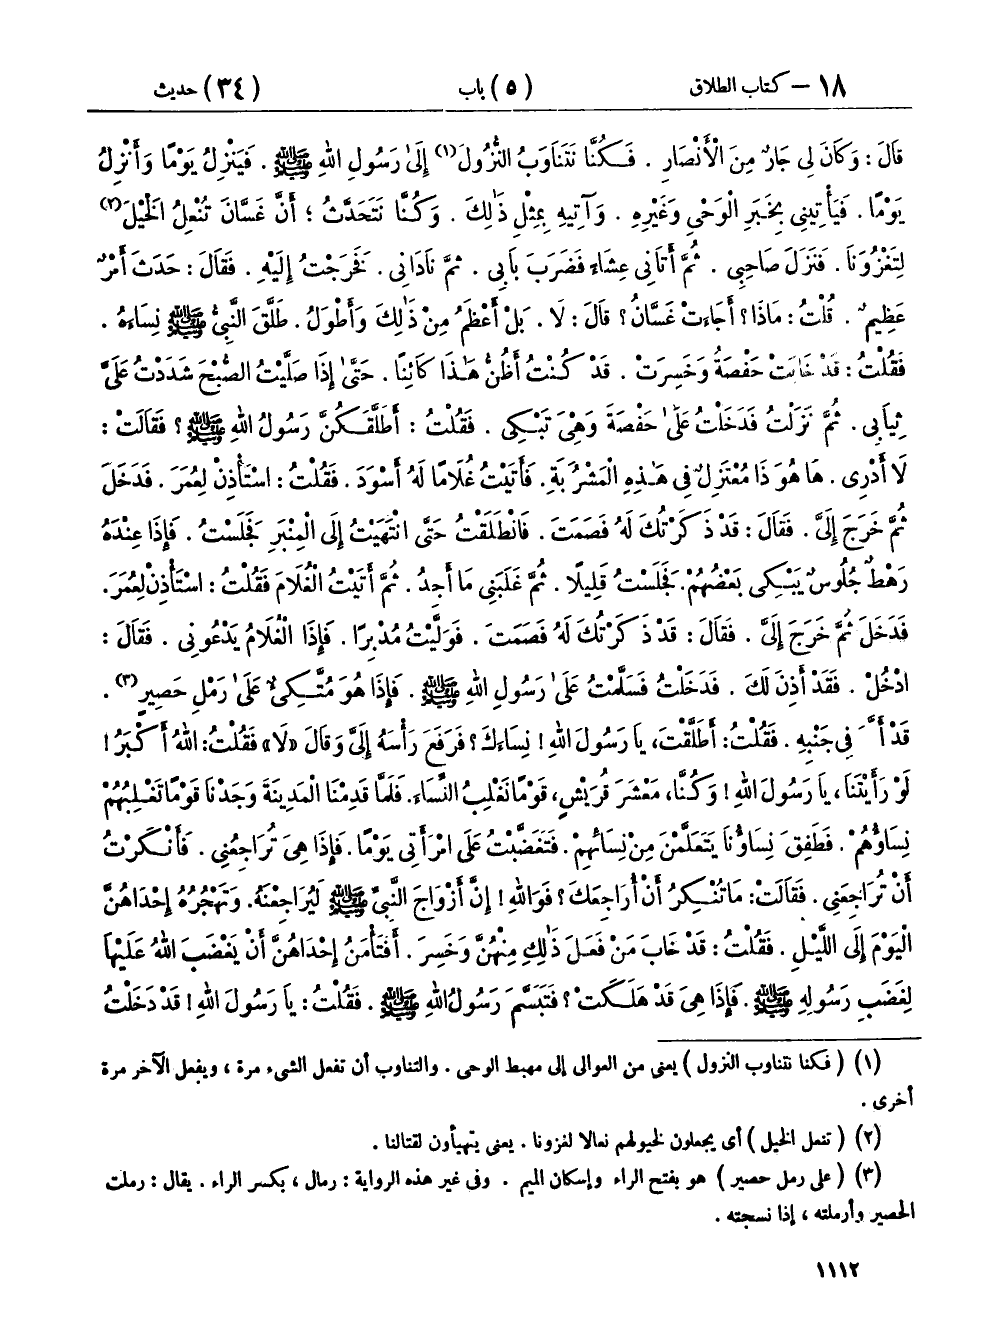 ١٨ – كتاب الطلاق (٥) باب (٣٤) حديث
قَالَ : وَكَانَ لِي جَارٌ مِنَ الْأَنْصَارِ . فَكُنَّا نَتَنَاوَبُ النُّزُولَ(١) إِلَىٰ رَسُولِ اللهِ ﷺ . فَيَنْزِلُ يَوْمًا وَأَنْزِلُ
يَوْمًا . فَيَأْتِينِي بِخَبَرِ الْوَحْيِ وَغَيْرِهِ . وَآتِيهِ بِمِثْلِ ذَٰلِكَ . وَكُنَّا نَتَحَدَّثُ ؛ أَنَّ غَسَّانَ تُنْعِلُ الْخَيْلَ(٢)
لِتَغْزُوَنَا . فَنَزَلَ صَاحِبِي . ثُمَّ أَتَانِي عِشَاءً فَضَرَبَ بَابِي . ثُمَّ نَادَانِي . فَخَرَجْتُ إِلَيْهِ . فَقَالَ : حَدَثَ أَمْرٌ
عَظِيمٌ . قُلْتُ : مَاذَا ؟ أَجَاءَتْ غَسَّانُ ؟ قَالَ : لَا . بَلْ أَعْظَمُ مِنْ ذَٰلِكَ وَأَطْوَلُ . طَلَّقَ النَّبِيُّ ﷺ نِسَاءَهُ .
فَقُلْتُ : قَدْ خَابَتْ حَفْصَةُ وَخَسِرَتْ . قَدْ كُنْتُ أَظُنُّ هَٰذَا كَائِنًا . حَتَّىٰ إِذَا صَلَّيْتُ الصُّبْحَ شَدَدْتُ عَلَيَّ
ثِيَابِي . ثُمَّ نَزَلْتُ فَدَخَلْتُ عَلَىٰ حَفْصَةَ وَهِيَ تَبْكِي . فَقُلْتُ : أَطَلَّقَكُنَّ رَسُولُ اللهِ ﷺ ؟ فَقَالَتْ :
لَا أَدْرِي . هَا هُوَ ذَا مُعْتَزِلٌ فِي هَٰذِهِ الْمَشْرُبَةِ . فَأَتَيْتُ غُلَامًا لَهُ أَسْوَدَ . فَقُلْتُ : اسْتَأْذِنْ لِعُمَرَ . فَدَخَلَ
ثُمَّ خَرَجَ إِلَيَّ . فَقَالَ : قَدْ ذَكَرْتُكَ لَهُ فَصَمَتَ . فَانْطَلَقْتُ حَتَّى انْتَهَيْتُ إِلَى الْمِنْبَرِ فَجَلَسْتُ . فَإِذَا عِنْدَهُ
رَهْطٌ جُلُوسٌ يَبْكِي بَعْضُهُمْ . فَجَلَسْتُ قَلِيلًا . ثُمَّ غَلَبَنِي مَا أَجِدُ . ثُمَّ أَتَيْتُ الْغُلَامَ فَقُلْتُ : اسْتَأْذِنْ لِعُمَرَ .
فَدَخَلَ ثُمَّ خَرَجَ إِلَيَّ . فَقَالَ : قَدْ ذَكَرْتُكَ لَهُ فَصَمَتَ . فَوَلَّيْتُ مُدْبِرًا . فَإِذَا الْغُلَامُ يَدْعُونِي . فَقَالَ :
ادْخُلْ . فَقَدْ أَذِنَ لَكَ . فَدَخَلْتُ فَسَلَّمْتُ عَلَىٰ رَسُولِ اللهِ ﷺ . فَإِذَا هُوَ مُتَّكِئٌ عَلَىٰ رَمْلِ حَصِيرٍ(٣) .
قَدْ فِي جَنْبِهِ . فَقُلْتُ : أَطَلَّقْتَ ، يَا رَسُولَ اللهِ ! نِسَاءَكَ ؟ فَرَفَعَ رَأْسَهُ إِلَيَّ وَقَالَ «لَا» فَقُلْتُ : اللهُ أَكْبَرُ !
لَوْ رَأَيْتَنَا ، يَا رَسُولَ اللهِ ! وَكُنَّا ، مَعْشَرَ قُرَيْشٍ ، قَوْمًا نَغْلِبُ النِّسَاءَ . فَلَمَّا قَدِمْنَا الْمَدِينَةَ وَجَدْنَا قَوْمًا تَغْلِبُهُمْ
نِسَاؤُهُمْ . فَطَفِقَ نِسَاؤُنَا يَتَعَلَّمْنَ مِنْ نِسَائِهِمْ . فَتَغَضَّبْتُ عَلَى امْرَأَتِي يَوْمًا . فَإِذَا هِيَ تُرَاجِعُنِي . فَأَنْكَرْتُ
أَنْ تُرَاجِعَنِي . فَقَالَتْ : مَا تُنْكِرُ أَنْ أُرَاجِعَكَ ؟ فَوَاللهِ ! إِنَّ أَزْوَاجَ النَّبِيِّ ﷺ لَيُرَاجِعْنَهُ . وَتَهْجُرُهُ إِحْدَاهُنَّ
الْيَوْمَ إِلَى اللَّيْلِ . فَقُلْتُ : قَدْ خَابَ مَنْ فَعَلَ ذَٰلِكَ مِنْهُنَّ وَخَسِرَ . أَفَتَأْمَنُ إِحْدَاهُنَّ أَنْ يَغْضَبَ اللهُ عَلَيْهَا
لِغَضَبِ رَسُولِهِ ﷺ . فَإِذَا هِيَ قَدْ هَلَكَتْ ؟ فَتَبَسَّمَ رَسُولُ اللهِ ﷺ . فَقُلْتُ : يَا رَسُولَ اللهِ ! قَدْ دَخَلْتُ
(١) ( فكنا نتناوب النزول ) يعنى من العوالى إلى مهبط الوحى . والتناوب أن تفعل الشىء مرة ، ويفعل الآخر مرة
أخرى .
(٢) ( تنعل الخيل ) أى يجعلون لخيولهم نعالا لغزونا . يعنى يتهيأون لقتالنا .
(٣) ( على رمل حصير ) هو بفتح الراء وإسكان الميم . وفى غير هذه الرواية : رمال ، بكسر الراء . يقال : رملت
الحصير وأرملته ، إذا نسجته .
١١١٢